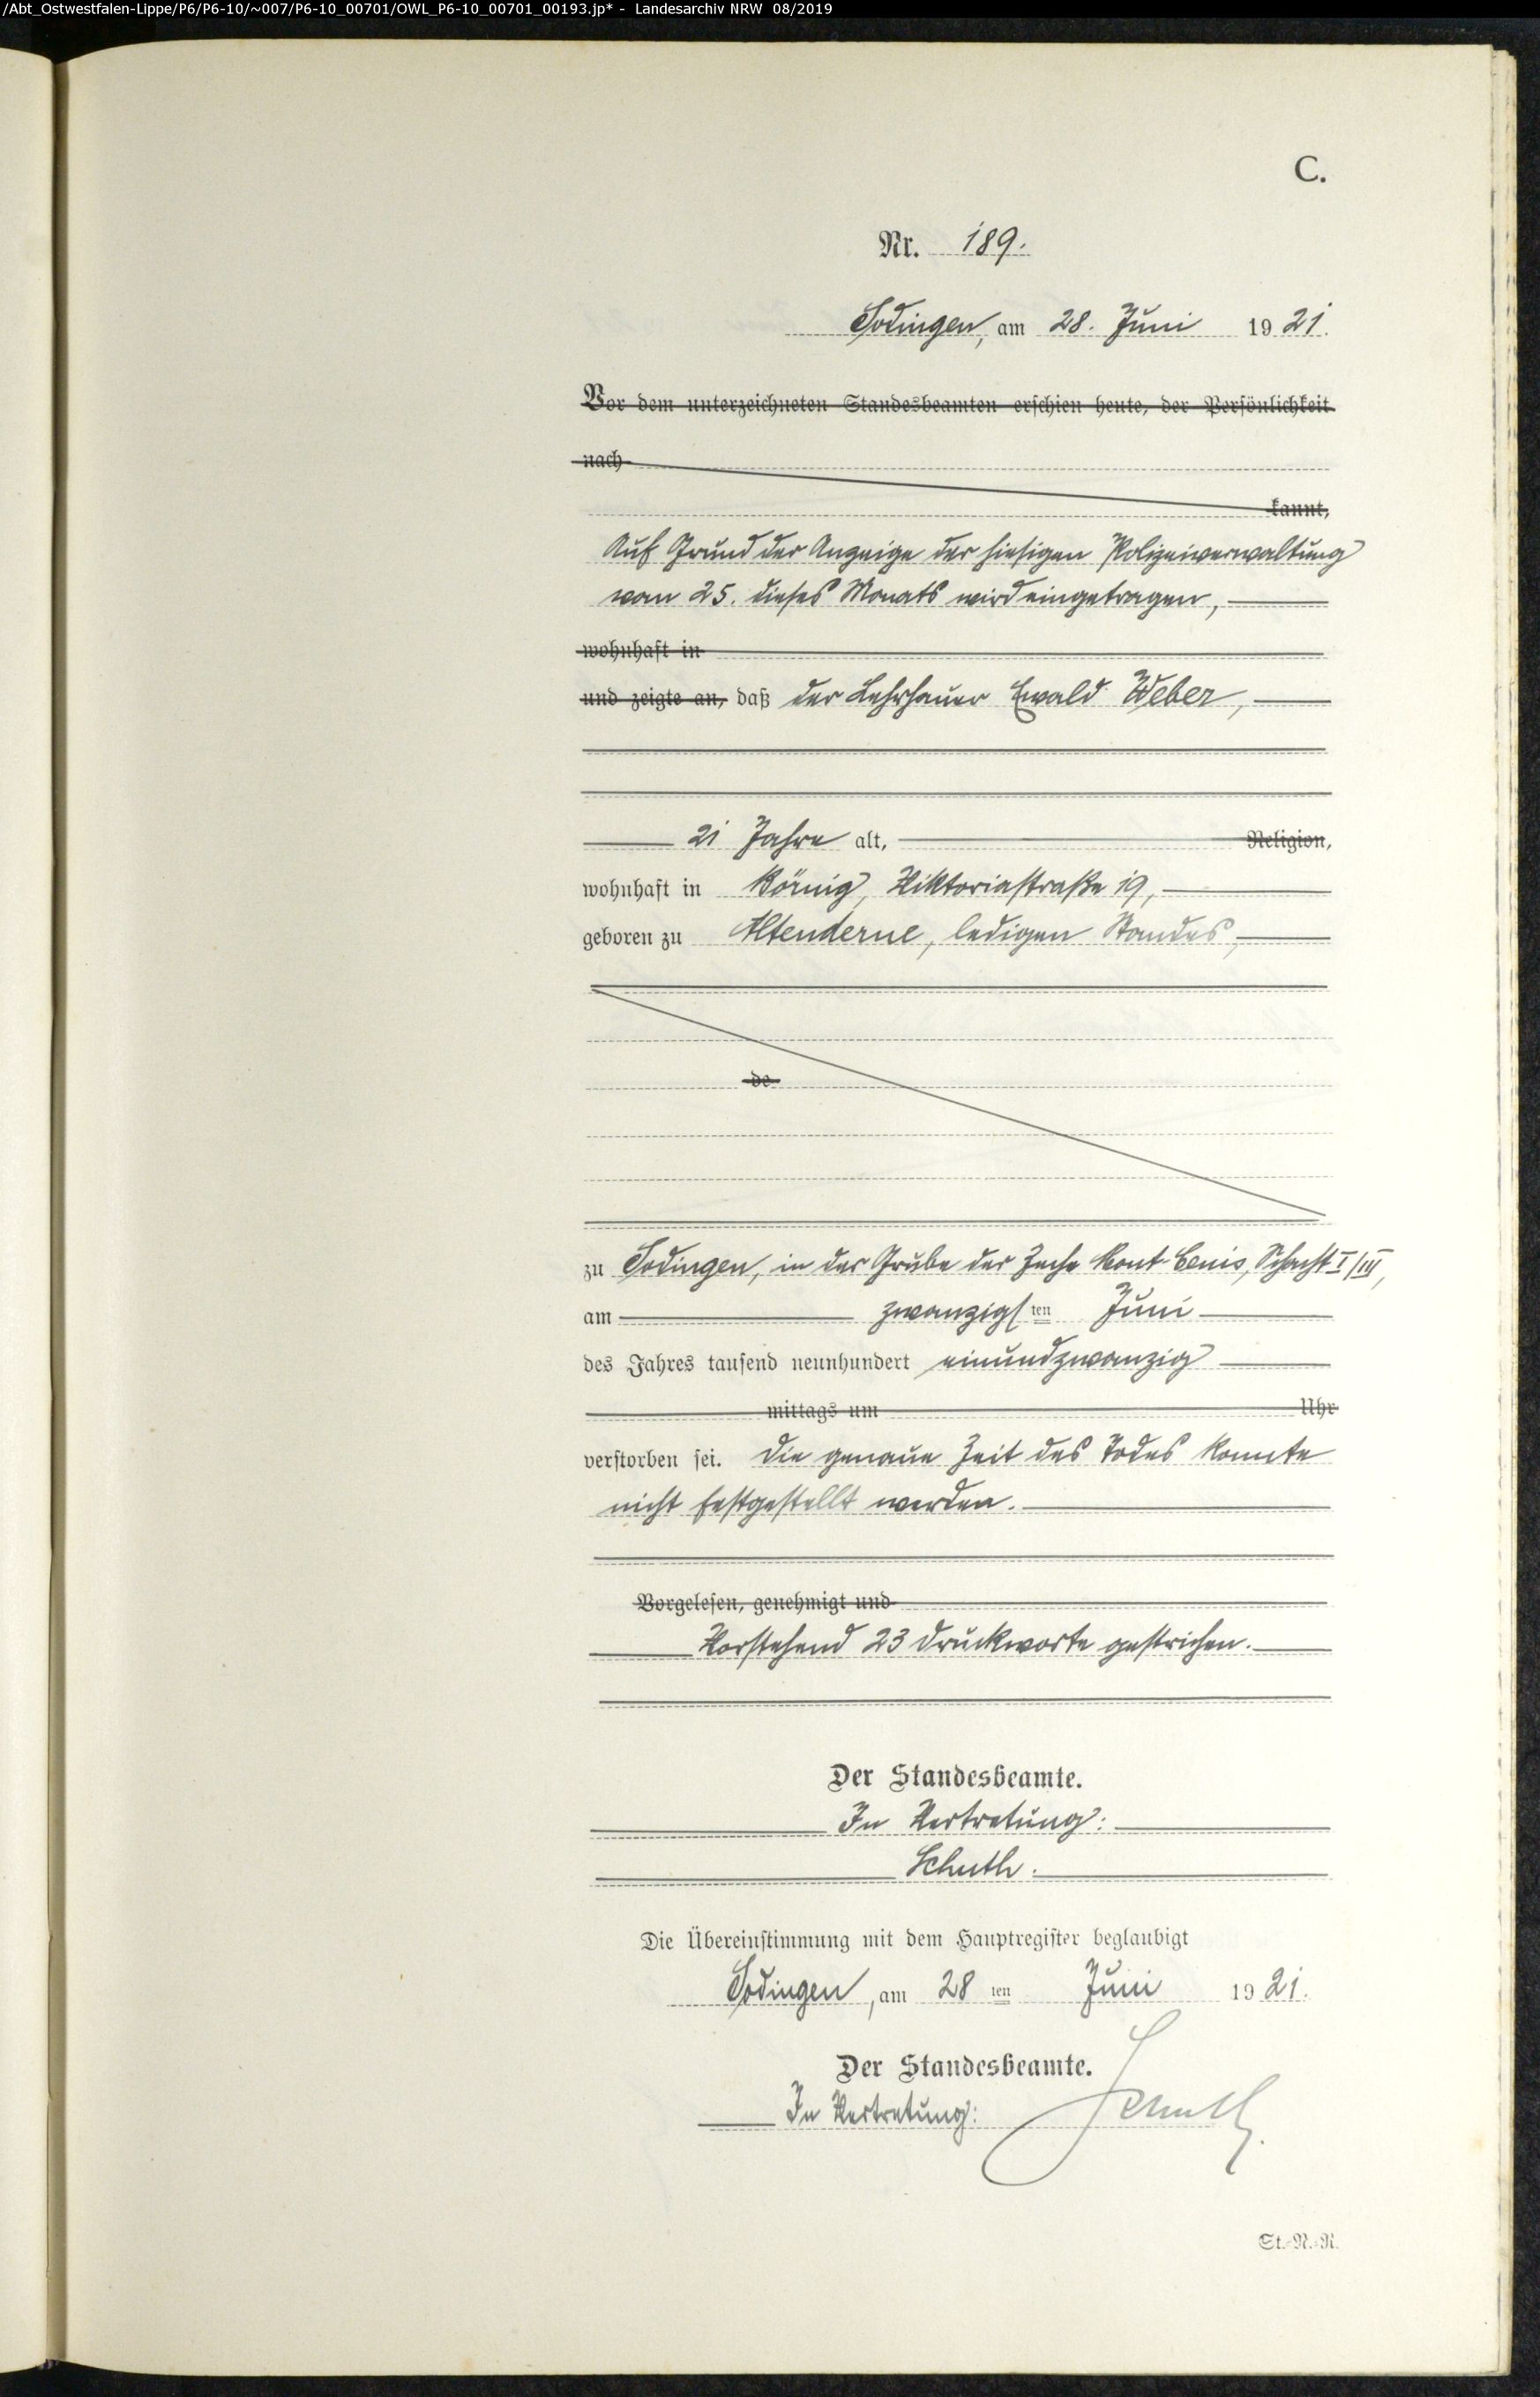 /Abt_Ostwestfalen-Lippe/P6/P6-10/~007/P6-10_00701/OWL_P6-10_00701_00193.jp* - Landesarchiv NRW 08/2019
C.
Nr. 189.
Sodingen, am 28. Juni 1921.
Vor dem unterzeichneten Standesbeamten erschien heute, der Persönlichkeit
nach
kannt,
Auf Grund der Anzeige der hiesigen Polizeiverwaltung
vom 25. dieses Monats wird eingetragen,
wohnhaft in
und zeigte an, daß der Lehrhauer Ewald Weber,
21 Jahre alt, Religion,
wohnhaft in Börnig, Viktoriastraße 19,
geboren zu Altenderne, ledigen Standes,
de
zu Sodingen, in der Grube der Zeche Mont-Cenis, Schacht I/III,
am zwanzigsten Juni
des Jahres tausend neunhundert einundzwanzig
mittags um Uhr
verstorben sei. Die genaue Zeit des Todes konnte
nicht festgestellt werden.
Vorgelesen, genehmigt und
Vorstehend 23 Druckworte gestrichen.
Der Standesbeamte.
In Vertretung:
Schuth.
Die Übereinstimmung mit dem Hauptregister beglaubigt
Sodingen, am 28ten Juni 1921.
Der Standesbeamte.
In Vertretung: Schuth.
St.-N.-R.